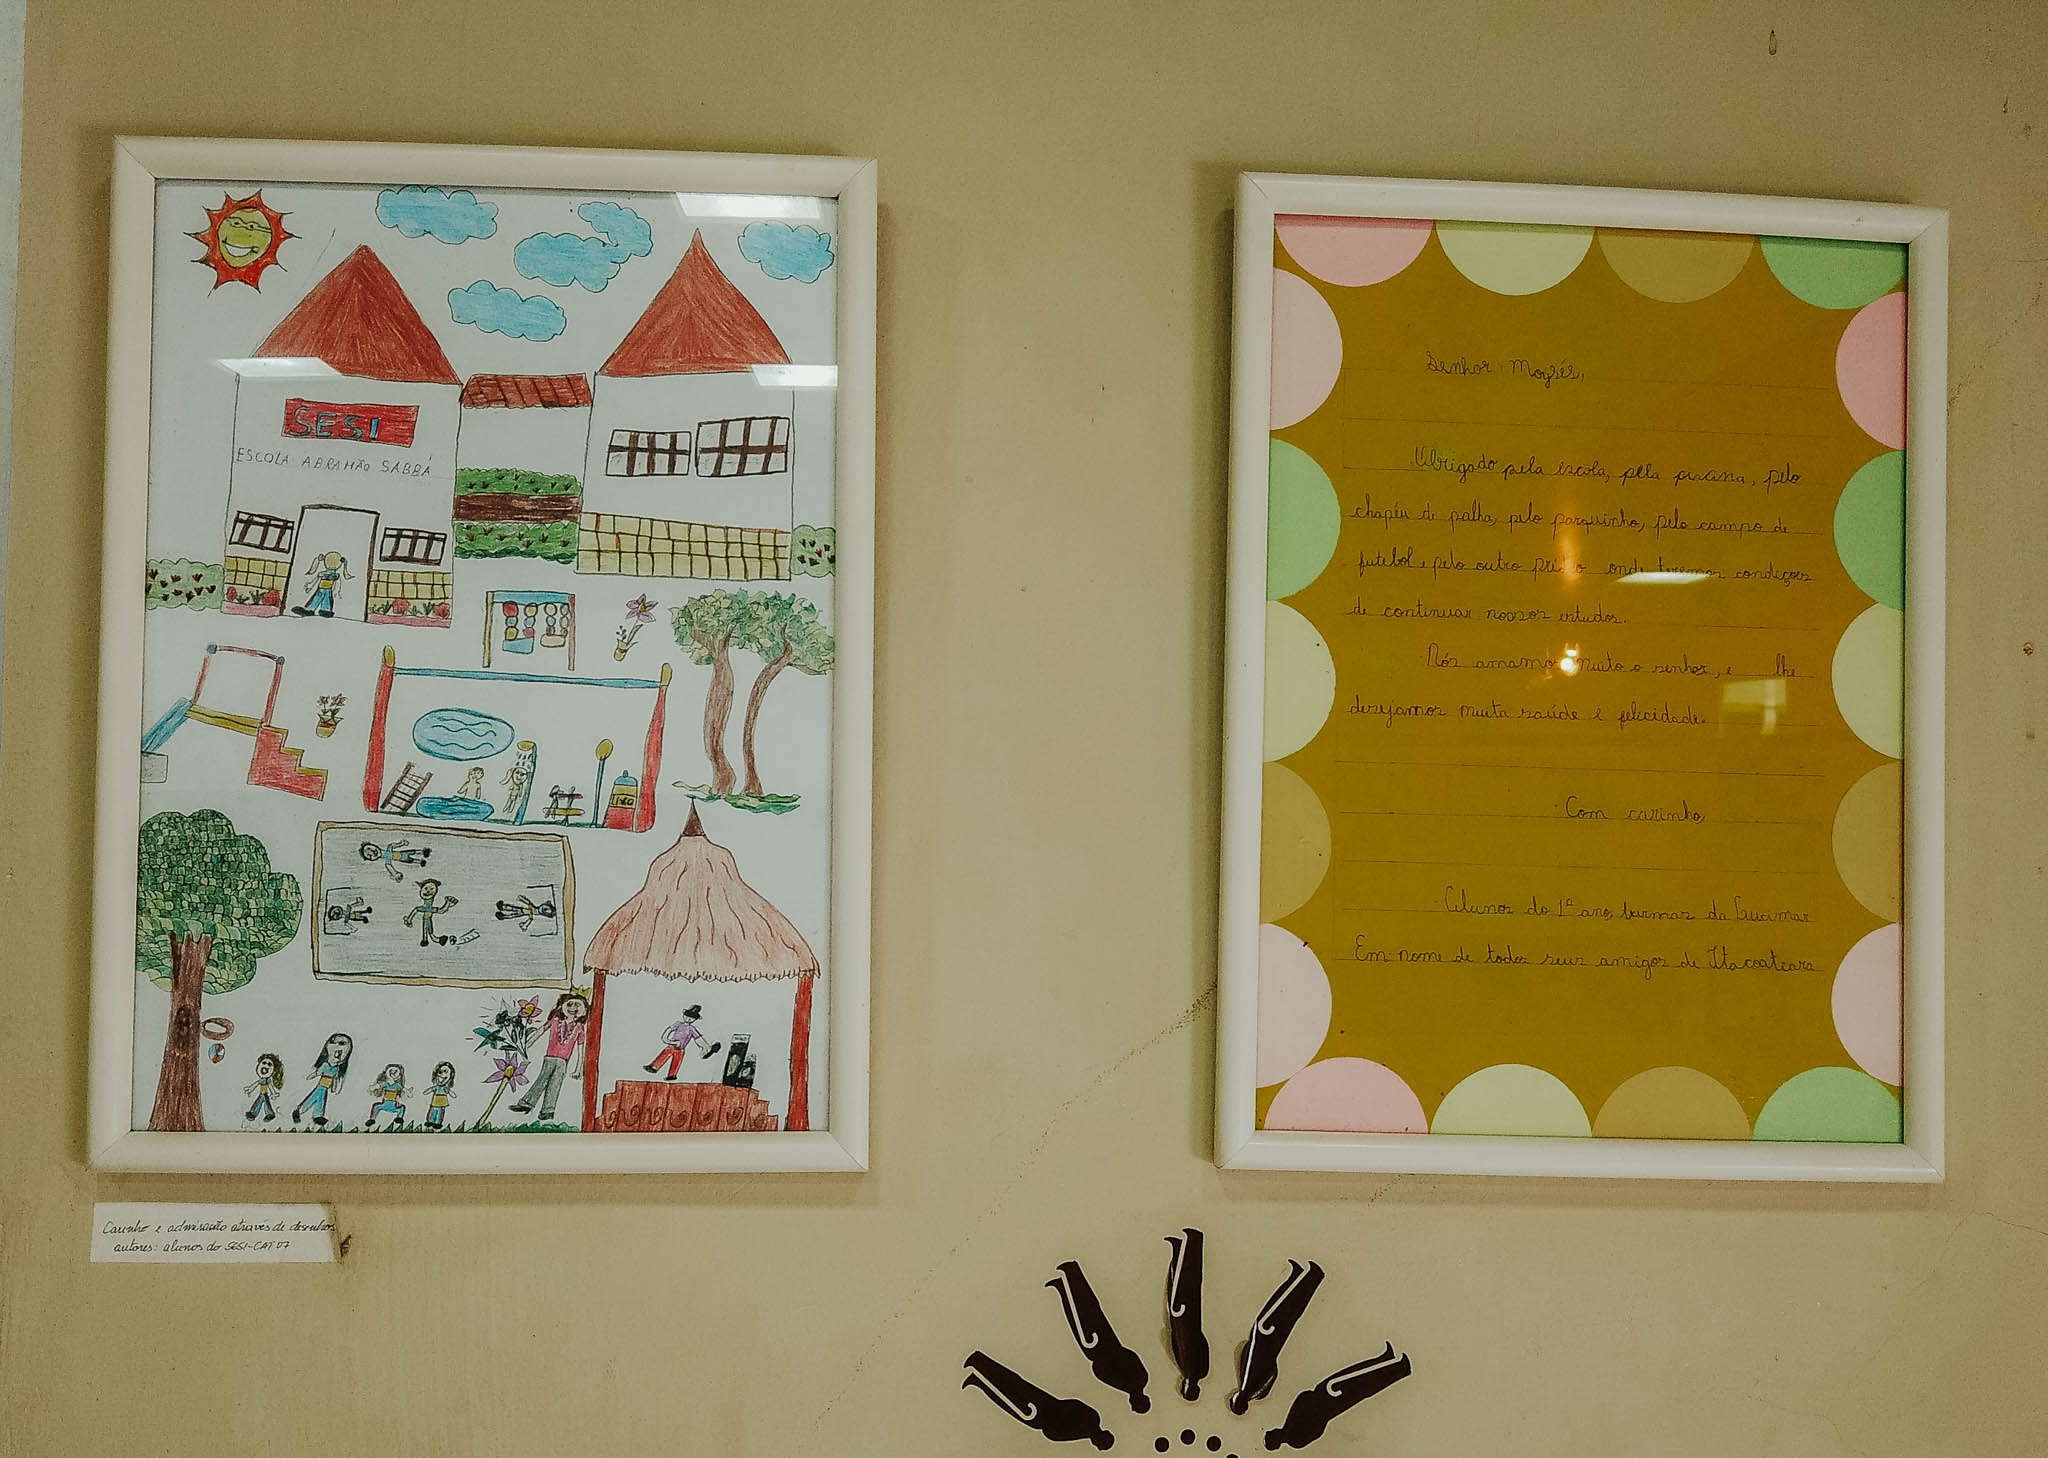 SESI
ESCOLA ABRAHÃO SABBÁ
Carinho e admiração através de desenhos
autores: alunos do SESI-CAT 07
Senhor Moysés,
Obrigado pela escola, pela piscina, pelo
chapéu de palha, pelo parquinho, pelo campo de
futebol e pelo outro prédio onde teremos condições
de continuar nossos estudos.
Nós amamos muito o senhor, e lhe
desejamos muita saúde e felicidade.
Com carinho
Alunos do 1º ano, turmas da Lucimar
Em nome de todos seus amigos de Itacoatiara